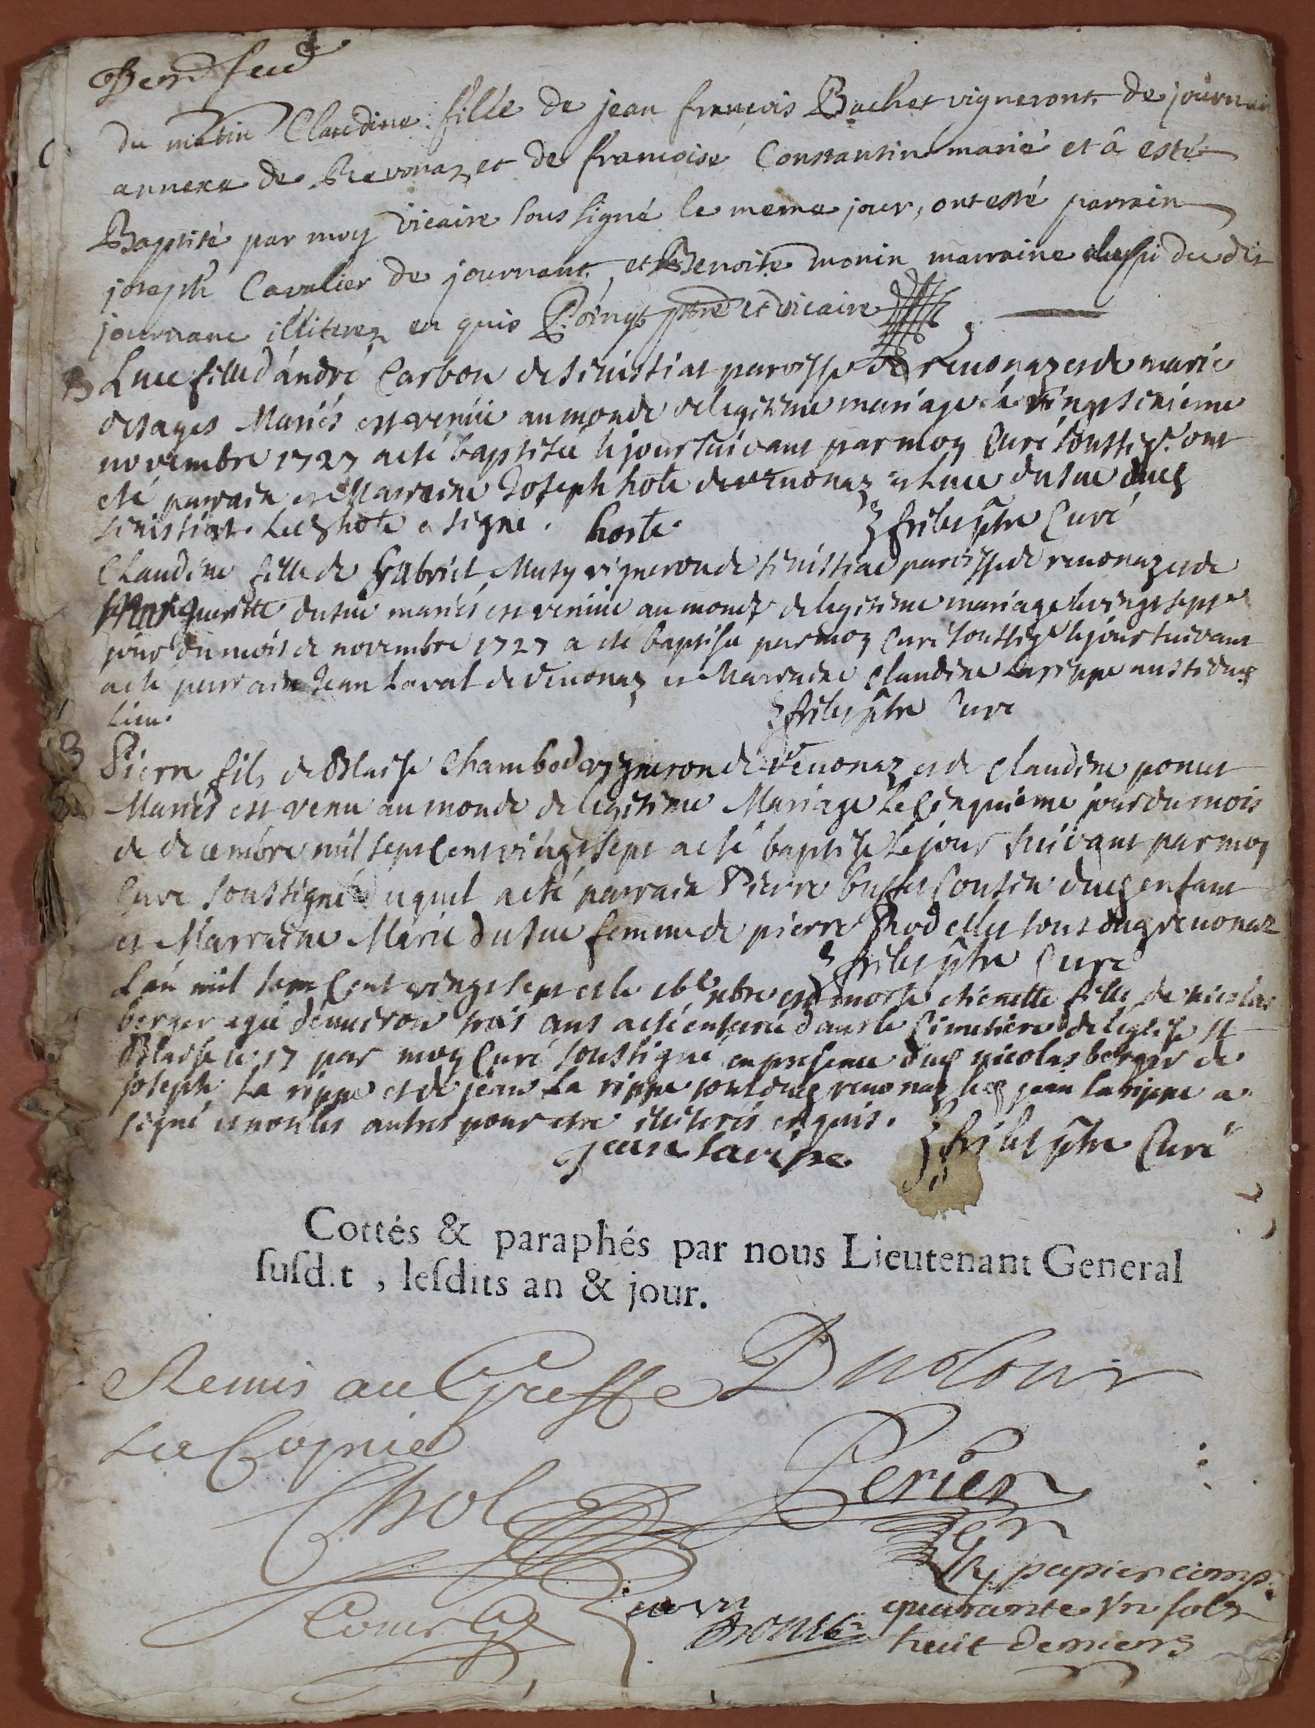 du matin Claudine fille de jean françois Bachet vigneront de journan
annexe de Revonaz et de francoise Constantin marié et â esté
Baptisé par moy vicaire soussigné le meme jour, ont esté parrain
joseph Cavalier de journant, et Benoite monin marraine aussi du dit
journant illiterez enquis Poingt ptre et vicaire
B Luce fille d'andré Carbon de sinistiat paroisse de revonaz et de marie
desages Mariés est venüe au monde de legitime mariage le vingt sixieme
novembre 1727 a eté baptisée le jour suivant par moy Curé soussigé ont
eté parrain et Marraine Joseph hote de revonaz et Luce dutue dud
sinistiat. Led hote a signé. hoste. fribs ptre Curé
Claudine fille de Gabriel Musy vigneron de sinistiat paroisse de revonaz et de
dutue mariés est venüe au monde de legitime mariage le vingt sept
jour du mois de novembre 1727 a eté baptisée par moy Curé soussigé le jour suivant
a eté parrain Jean Laval de revonaz et Marraine Claudine Larippe aussi dud
Lieu. fribs ptre Curé
B Pierre fils de Blaise Chambod vigneron de revonaz et de Claudine ponut
Mariés est venu au monde de legitime Mariage le Cinquieme jour du mois
de decembre mil sept Cent vingt sept a eté baptisé le jour suivant par moy
Curé soussigné duquel a eté parrain Pierre buffet Cousin dud enfant
et Marraine Marie dutue femme de pierre tous dud revonaz
L'an mil sept Cent vingt sept et le est morte etienette fille de nicolas
berger agée d'environ trois ans a eté enterrée dans le Cimetiere de l'eglise St
Blaise le 17 par moy Curé soussigné en presence dud nicolas berger de
joseph La rippe et de jean La rippe tous dud revonaz led jean larippe a
signé et non les autres pour etre illiterés enquis.
jean larippe fribs ptre Curé
Cottés & paraphés par nous Lieutenant General
ſuſd.t , leſdits an & jour.
Remis au Greffe
La Coppie
Chol
Perier
papier comp.
quarante un sols
huit deniers